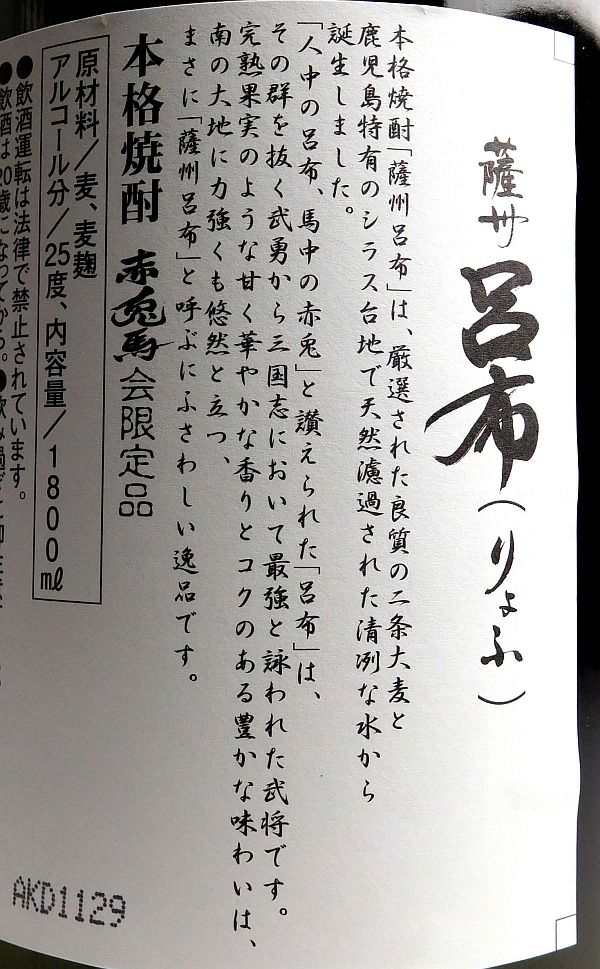 薩州 呂布(りょふ)
本格焼酎「薩州呂布」は、厳選された良質の二条大麦と
鹿児島特有のシラス台地で天然濾過された清冽な水から
誕生しました。
「人中の呂布、馬中の赤兎」と讃えられた「呂布」は、
その群を抜く武勇から三国志において最強と詠われた武将です。
完熟果実のような甘く華やかな香りとコクのある豊かな味わいは、
南の大地に力強くも悠然と立つ、
まさに「薩州呂布」と呼ぶにふさわしい逸品です。
本格焼酎 赤兎馬会限定品
原材料/麦、麦麹
アルコール分/25度、内容量/1800㎖
●飲酒運転は法律で禁止されています。
●飲酒は20歳になってから。●飲み過ぎに
AKD1129